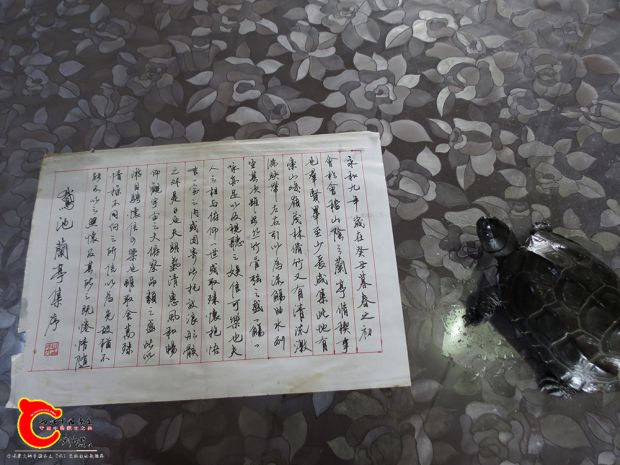 永和九年歲在癸丑暮春之初
會於會稽山陰之蘭亭脩禊事
也羣賢畢至少長咸集此地有
崇山峻嶺茂林脩竹又有清流激
湍映帶左右引以為流觴曲水列
坐其次雖無絲竹管弦之盛一觴一
足以極視聽之娛信可樂也夫
人之相與俯仰一世或取諸懷抱悟
言一室之內或因寄所託放浪形骸
之外是日也天朗氣清惠風和暢
仰觀宇宙之大俯察品類之盛所以
遊目騁懷信可樂也雖取舍萬殊
情不同
能不以之興懷及其所之既倦情隨
鵞池蘭亭集序